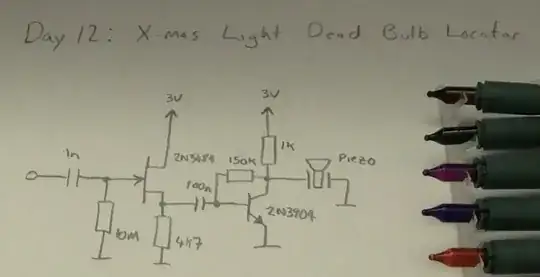 Day 12: X-mas Light Dead Bulb Locator
3V
3V
1n
2N5484
150K
1K
Piezo
100n
2N3904
10M
4k7